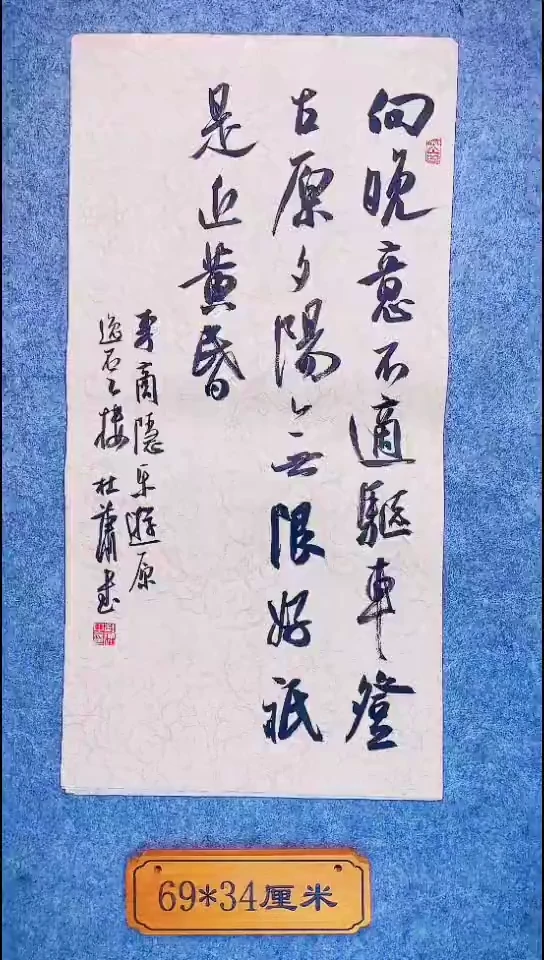 向晚意不適驅車登
古原夕陽無限好祇
是近黃昏
李商隱樂遊原
逸石之樓 杜蕭書
69*34厘米